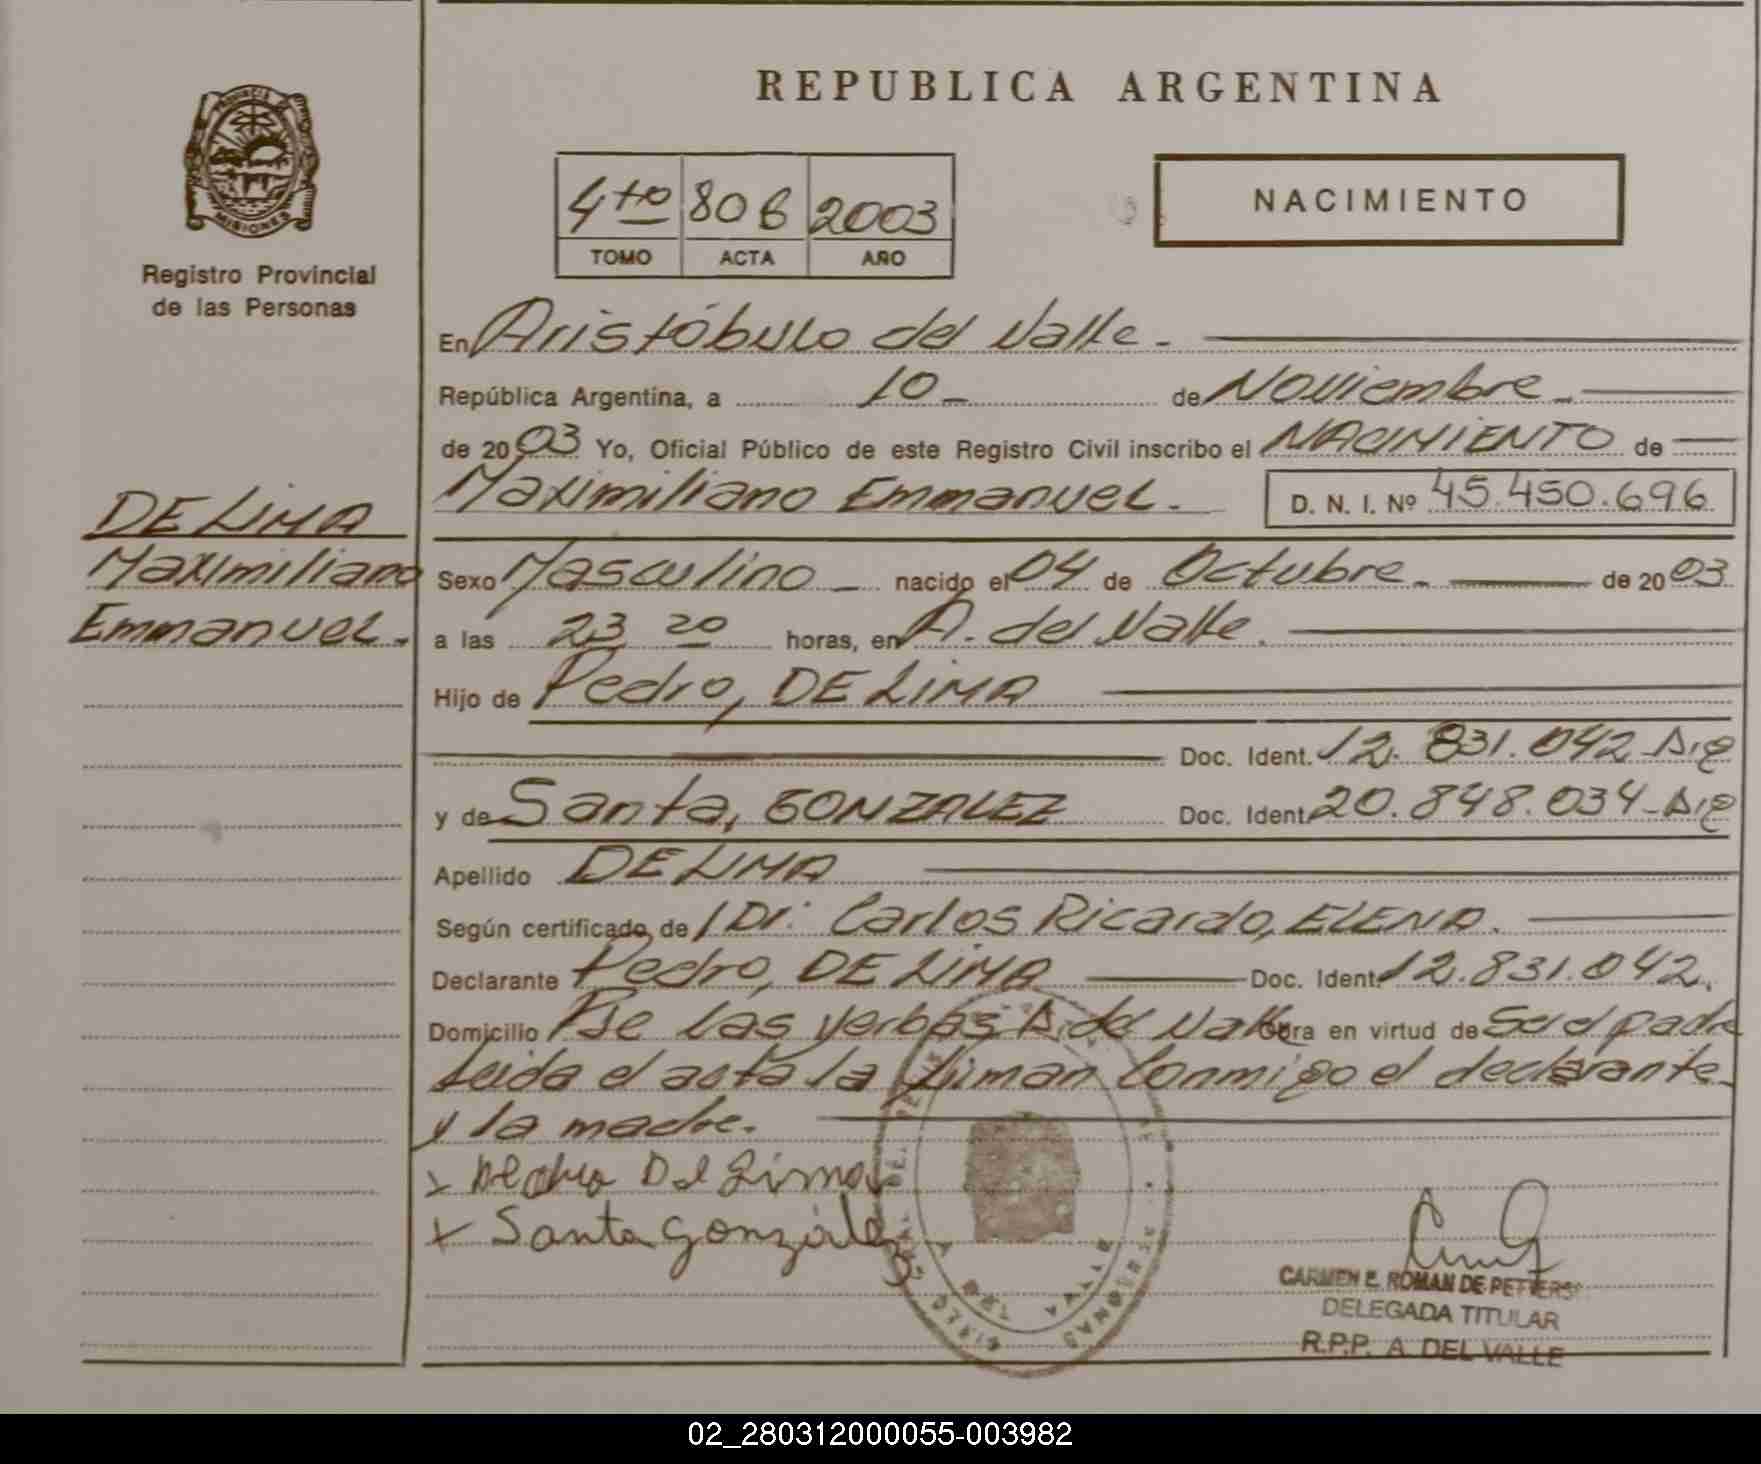 REPUBLICA ARGENTINA
PROVINCIA DE
MISIONES
Registro Provincial
de las Personas
4to 806 2003
TOMO ACTA AÑO
NACIMIENTO
En Aristóbulo del Valle.-
República Argentina, a 10- de Noviembre.-
de 2003 Yo, Oficial Público de este Registro Civil inscribo el NACIMIENTO de
Maximiliano Emmanuel.- D. N. I. Nº 45.450.696
DE LIMA
Maximiliano
Emmanuel.-
Sexo Masculino - nacido el 04 de Octubre.- de 2003
a las 23 20 horas, en A. del Valle.
Hijo de Pedro, DE LIMA
Doc. Ident. 12.831.042-Arg
y de Santa, GONZALEZ Doc. Ident. 20.848.034-Arg
Apellido DE LIMA
Según certificado de / Dr. Carlos Ricardo, ELENA.
Declarante Pedro, DE LIMA Doc. Ident. 12.831.042.
Domicilio Pje Las Yerbas A. del Valle Obra en virtud de Ser el padre
Leida el acta la firman Conmigo el declarante
y la madre.
x De Lima
x Santa González
CARMEN E. ROMAN DE PETTERS
DELEGADA TITULAR
R.P.P. A. DEL VALLE
02_280312000055-003982